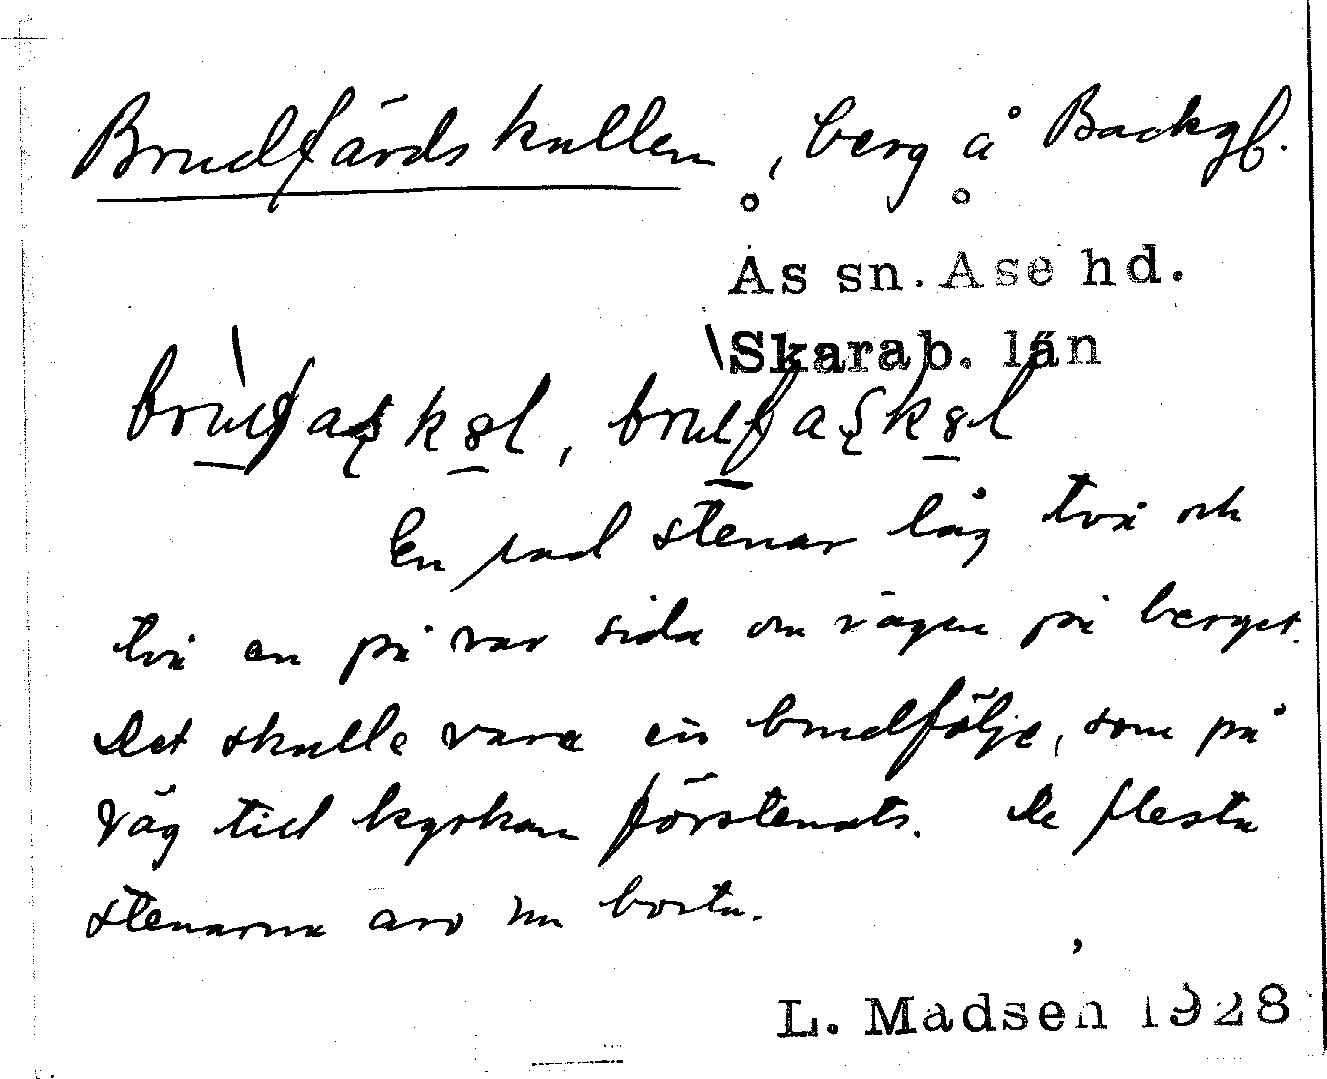 Brudfärdskullen, berg å Backgb.
Ås sn. Åse hd.
Skarab. län
En rad stenar låg två och
två en på var sida om vägen på berget.
Det skulle vara ett brudfölje, som på
väg till kyrkan förstenats. De flesta
stenarna äro nu borta.
L. Madsen 1928